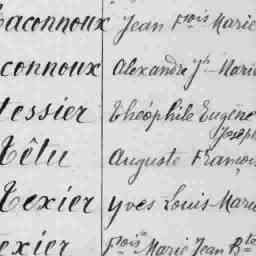 Taconnoux Jean Fçois Marie
connoux Alexandre Jh Marie
Tessier Théophile Eugène
Joseph
Têtu Auguste François
Texier Yves Louis Marie
exier Fçois Marie Jean Bte